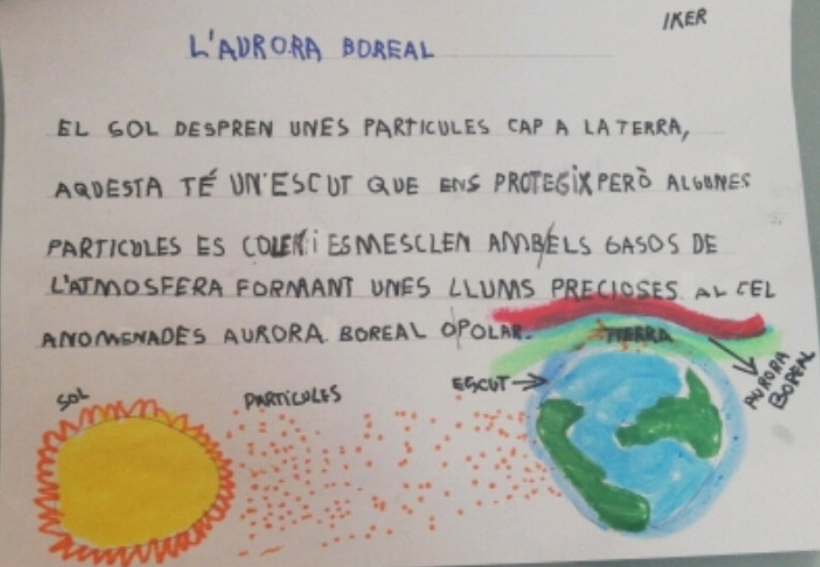 IKER
L'AURORA BOREAL
EL SOL DESPREN UNES PARTICULES CAP A LA TERRA,
AQUESTA TÉ UN'ESCUT QUE ENS PROTEGIX PERÒ ALGUNES
PARTICULES ES COLEN i ES MESCLEN AMB ELS GASOS DE
L'ATMOSFERA FORMANT UNES LLUMS PRECIOSES AL CEL
ANOMENADES AURORA BOREAL O POLAR.
TIERRA
ESCUT
AURORA
BOREAL
SOL
PARTÍCULES